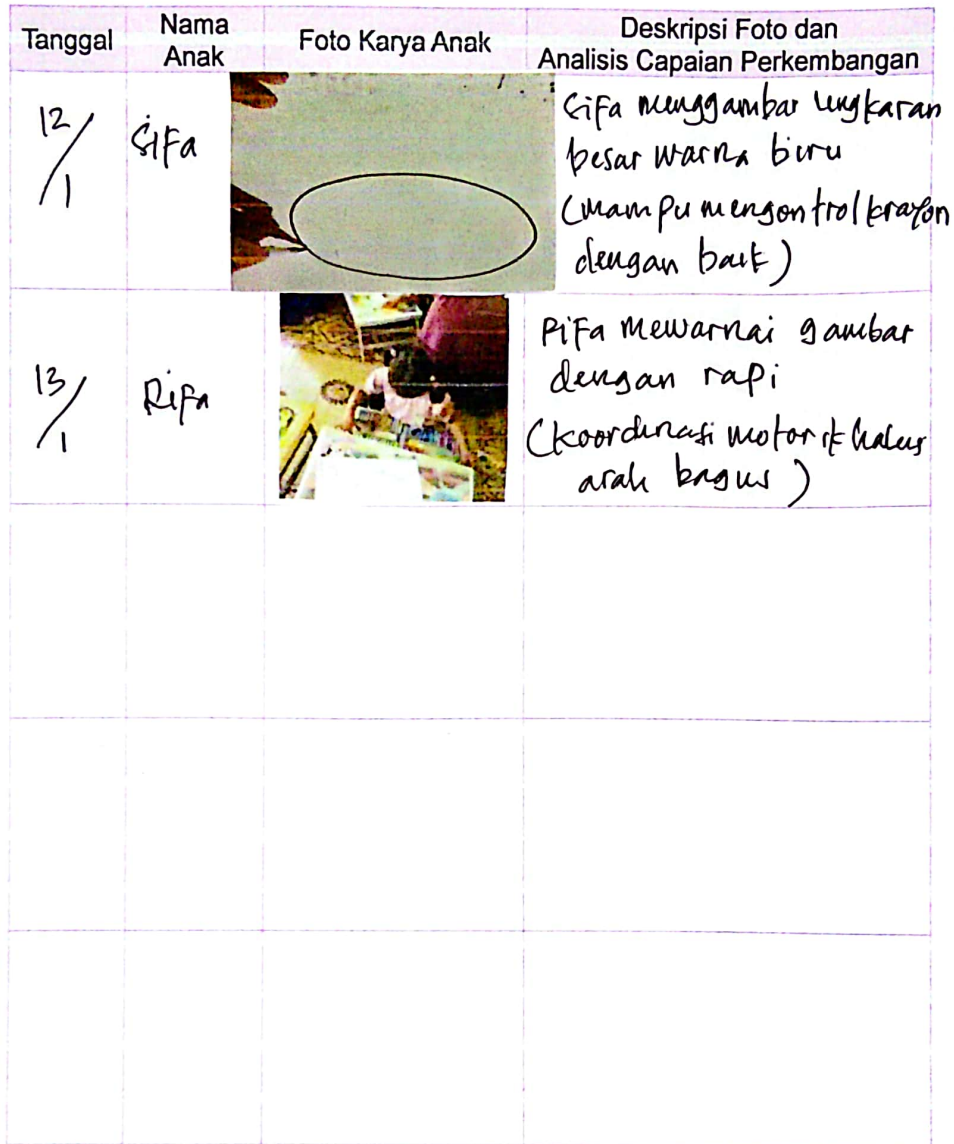 Tanggal
Nama
Anak
Foto Karya Anak
Deskripsi Foto dan
Analisis Capaian Perkembangan
12/1
Sifa
Sifa menggambar lingkaran
besar warna biru
(mampu mengontrol krayon
dengan baik)
13/1
Rifa
Rifa mewarnai gambar
dengan rapi
(koordinasi motorik halus
arah bagus)